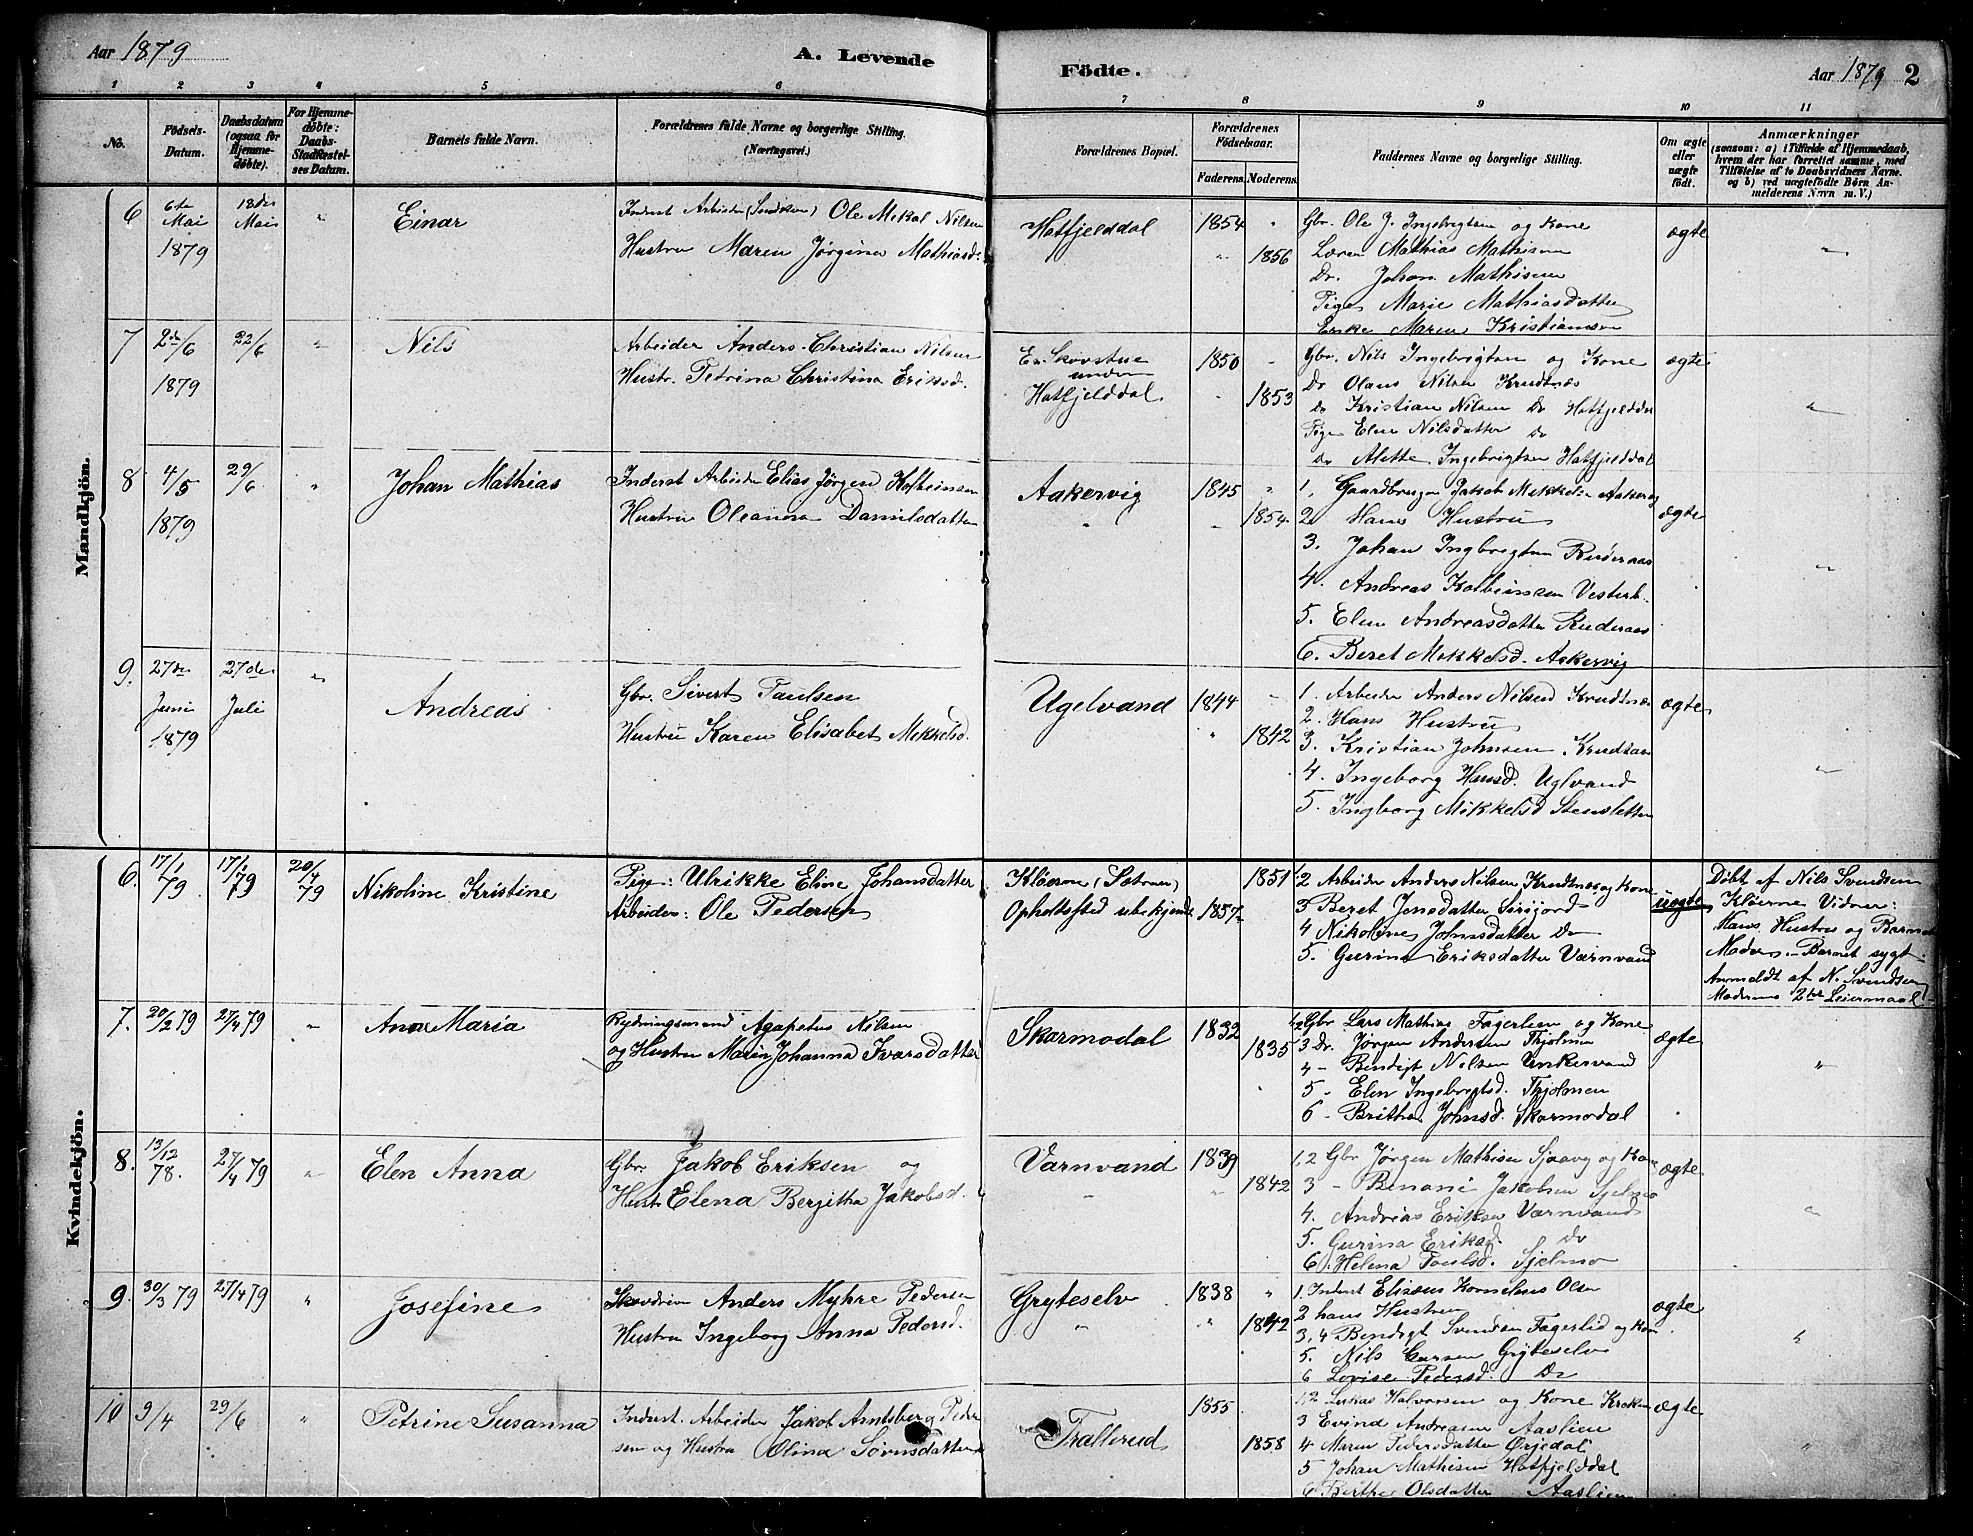 Aar 1879
A. Levende
Födte.
Aar 1879 2
1 2 3 4 5 6 7 8 9 10 11
No.
Födsels-Datum.
Daabsdatum (ogsaa for Hjemmedøbte).
For Hjemmedøbte: Daabs-Stadfæstelses Datum.
Barnets fulde Navn.
Forældrenes fulde Navne og borgerlige Stilling. (Næringsvei.)
Forældrenes Bopæl.
Forældrenes Födselsaar.
Faderens. Moderens.
Faddernes Navne og borgerlige Stilling.
Om ægte eller uægte födt.
Anmærkninger
(saasom: a) i Tilfælde af Hjemmedaab, hvem der har forrettet samme, med Tilföielse af to Daabsvidners Navne. og b) ved uægtefödte Börn Anmelderens Navn m. V.)
Mandkjön.
6 6te Mai 1879 18de Mai " Einar
Inderst Arbeider Ole Mekal Nilsen
Hustru Maren Jørgine Mathiasd.
Hatfjelddal 1854 1856
Gbr. Ole J. Ingebrigtsen og Kone
Mathias Mathisen
Do. Johan Mathisen
Pige Marie Mathiasdatter
Enke Maren Kristiansen
ægte "
7 2den/6 1879 22/6 " Nils
Arbeider Anders Christian Nilsen
Hustr. Petrina Christina Eriksd.
En Skovstue under Hatfjelddal 1850 1853
Gbr. Nils Ingebrigtsen og Kone
Do Olaus Nilsen Krudtnæs
do Kristian Nilsen Do Hatfjelddal
Pige Elen Nilsdatter do
do Alette Ingebrigtsen Hatfjelddal
ægte "
8 4/5 1879 29/6 " Johan Mathias
Inderst Arbeider Elias Jørgen Kolbeinsen
Hustru Oleanna Danielsdatter
Aakervig 1845 1854
1. Gaardbruger Jakob Mikkelsen Aakervig
2. Hans Hustru
3. Johan Ingbrigtsen
4. Andreas Kolbeinsen Vesterb.
5. Elen Andreasdatter
6. Beret Mikkelsd. Aakervig
ægte "
9. 27de Juni 1879 27de Juli " Andreas
Gbr. Sivert Paulsen
Hustru Karen Elisabet Mikkelsd.
Ugelvand 1844 1842
1. Arbeider Anders Nilsen Krudtnæs
2. Hans Hustru
3. Kristian Johnsen
4. Ingeborg Hansd. Uglvand
5. Ingborg Mikkelsd Stensletten
ægte "
Kvindekjön.
6. 17/1 79 17/1 79 20/4 79 Nikoline Kristine
Pige: Ulrikke Eline Johansdatter
Arbeider: Ole Pedersen
Kløerne (Sætran) 1851
Opholtssted ubekjendt 1857
1,2 Arbeider Anders Nilsen Krudtnes og Kone
3 Beret Jonsdatter Sørgjord
4 Nikoline Johnsdatter Do
5. Gurina Eriksdatter Varnvand
uægte
Döbt af Nils Svendsen
Kløerne Vidner:
Hans Hustru og Barnets
Moder. Barnet sygt.
Anmeldt af N. Svendsen
Moderens 2det Leiermaal
7. 20/2 79 27/4 79 " Ana Maria
Rydningsmand Agapetus Nilsen
og Hustru Maren Johanna Ivarsdatter
Skarmodal 1832 1835
1,2 Gbr. Lars Mathias Fagerlien og Kone
3 Do. Jørgen Andersen Thjolmen
4 - Bendigt Nilsen Unkervand
5 - Elen Ingebrigtsd. Thjolmen
6 - Britha Johnsd. Skarmodal
ægte "
8. 13/12 78. 27/4 79 " Elen Anna
Gbr. Jakob Eriksen og
Hust. Elena Bergitha Jakobsd.
Varnvand 1839 1842
1,2 Gbr Jørgen Mathisen Sjaavg og Kone
3 - Benoni Jakobsen Sjelmo
4. Andreas Eriksen Varnvand
5. Gurina Eriksd. Do
6. Helena Paulsd. Sjelmo
ægte "
9. 30/3 79 27/4 79 " Josefine
Anders Myhre Pedersen
Hustru Ingeborg Anna Pedersd.
Gryteselv 1838 1842
1. Inderst Elisæus Kornelius Olsen
2 hans Hustru
3, 4 Bendigt Svendsen Fagerlid og Kone
5. Nils Larsen Gryteselv
6 Lovise Pedersd. Do
ægte "
10 9/4 29/6 " Petrine Susanna
Inderst. Arbeider Jakob Arntsberg Peder
sen og Hustru Olina Sørensdatter
Trallerud 1855 1858
1,2 Lukas Halvorsen og Kone Kroken
3 Evind Andreasen Aaslien
4 Maren Pedersdatter Ørjedal
5 Johan Mathisen Hatfjelddal
6 Berthe Olsdatter Aaslien
ægte "